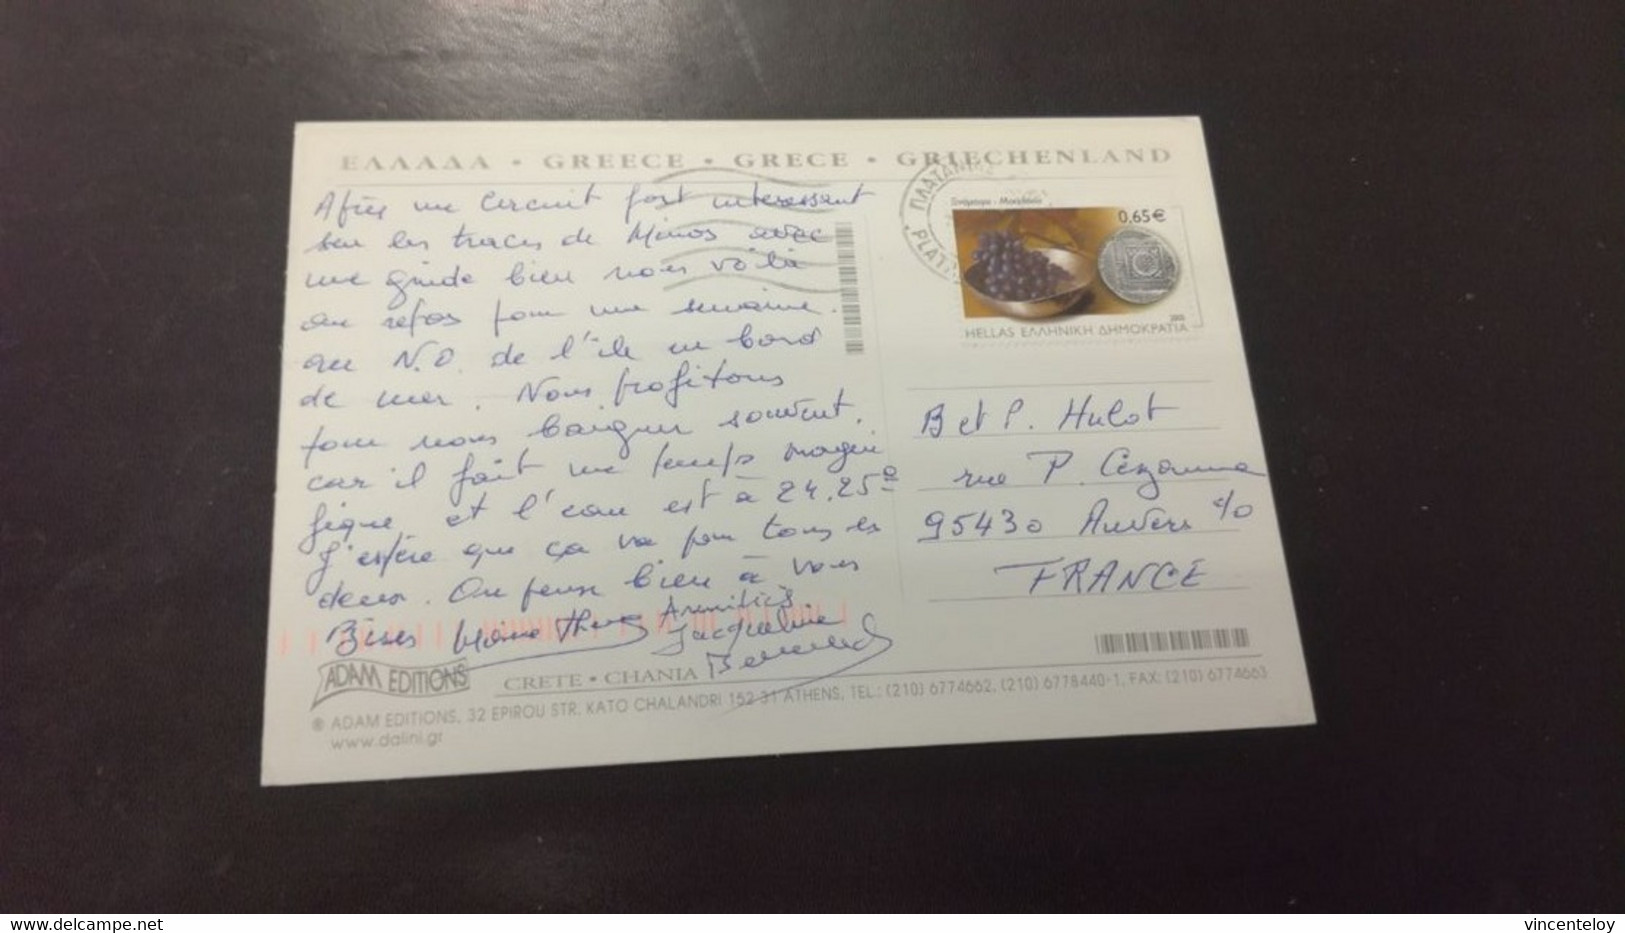 ΕΛΛΑΔΑ • GREECE • GRECE • GRIECHENLAND
Après un Circuit fort intéressant
sur les traces de Minos avec
une guide bien nous voilà
au repos pour une semaine.
au N.O. de l'île en bord
de mer. Nous profitons
pour nous baigner souvent.
car il fait un temps magni
fique et l'eau est à 24.25°
J'espère que ça va pour tous les
deux. On pense bien à vous
Bises Marie Thé Amitiés
Jacqueline
ΠΛΑΤΑΝΙΑΣ
PLATA
Ξινόμαυρο - Μακεδονία
0,65€
2005
HELLAS ΕΛΛΗΝΙΚΗ ΔΗΜΟΚΡΑΤΙΑ
B et P. Hulot
rue P. Cézanne
95430 Auvers s/o
FRANCE
ADAM EDITIONS
CRETE • CHANIA
® ADAM EDITIONS, 32 EPIROU STR. KATO CHALANDRI 152 31 ATHENS, TEL: (210) 6774662, (210) 6778440-1, FAX: (210) 6774663
www.dalini.gr
delcampe.net
vincenteloy